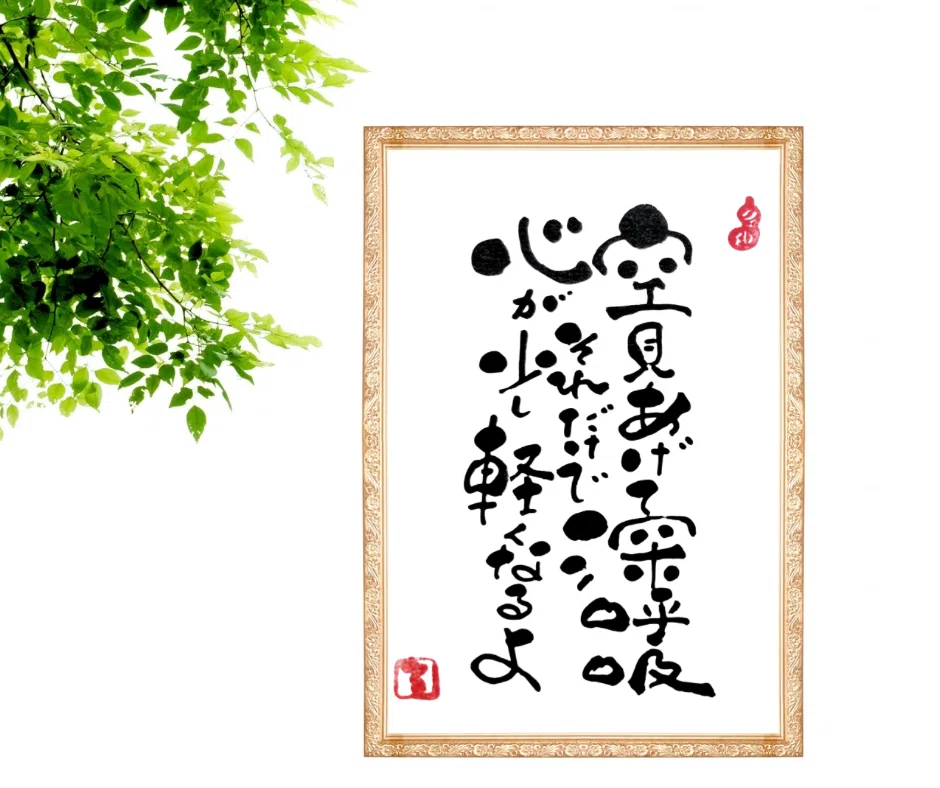 空見あげて深呼吸
それだけで
心が少し軽くなるよ